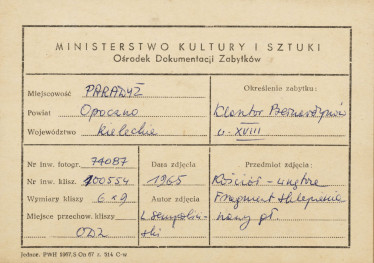 MINISTERSTWO KULTURY I SZTUKI
Ośrodek Dokumentacji Zabytków
Miejscowość PARADYŻ
Powiat Opoczno
Województwo Kieleckie
Określenie zabytku:
Klasztor Bernardynów
XVIII
Nr inw. fotogr. 74087
Nr inw. klisz. 100554
Wymiary kliszy 6x9
Miejsce przechow. kliszy
ODZ
Data zdjęcia
1965
Autor zdjęcia
Przedmiot zdjęcia:
Kościół - wnętrze
Fragment sklepienia
nawy gł.